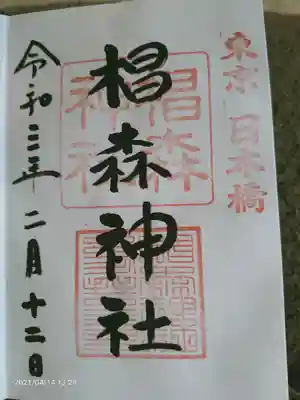 東京 日本橋
椙森
神社
椙森神社
令和三年二月十二日
2021/04/14 12:29